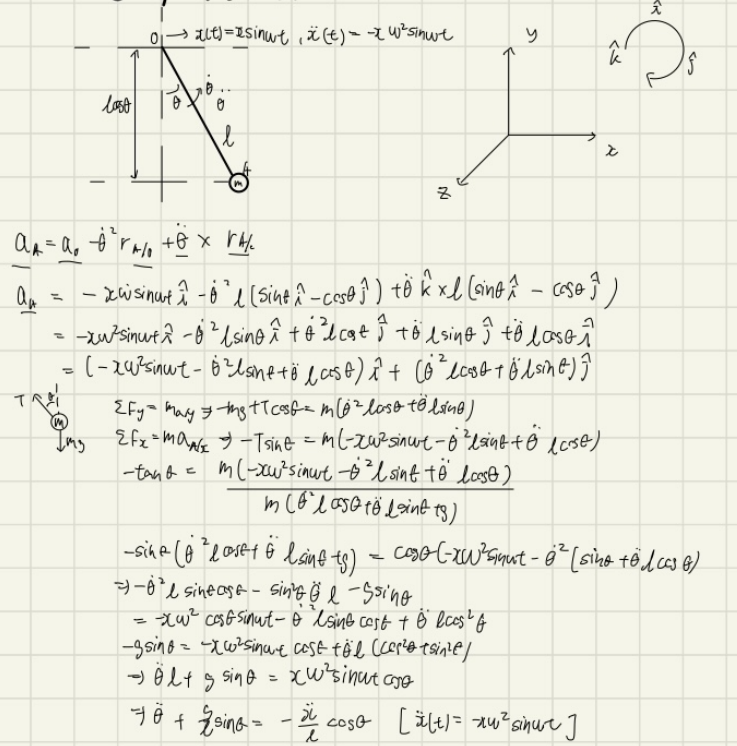 O → x(t)=x sinωt , ẍ(t) = -xω² sinωt
lcosθ
θ
θ̇
θ̈
l
m
y
x
z
x̂
k̂
ĵ
a_A = a_o - θ̇² r_A/o + θ̈ × r_A/c
a_A = - xω̇ sinωt î - θ̇² l (sinθ î - cosθ ĵ) + θ̈ k̂ × l (sinθ î - cosθ ĵ)
= -xω² sinωt î - θ̇² l sinθ î + θ̇² l cosθ ĵ + θ̈ l sinθ ĵ + θ̈ l cosθ î
= (-xω² sinωt - θ̇² l sinθ + θ̈ l cosθ) î + (θ̇² l cosθ + θ̈ l sinθ) ĵ
T
θ
m
mg
ΣFy = may ⇒ -mg + Tcosθ = m(θ̇² lcosθ + θ̈ l sinθ)
ΣFx = ma_A/x ⇒ -Tsinθ = m(-xω² sinωt - θ̇² l sinθ + θ̈ l cosθ)
-tanθ = m(-xω² sinωt - θ̇² l sinθ + θ̈ l cosθ)
m(θ̇² l cosθ + θ̈ l sinθ + g)
-sinθ (θ̇² l cosθ + θ̈ l sinθ + g) = cosθ (-xω² sinωt - θ̇² l sinθ + θ̈ l cosθ)
⇒ -θ̇² l sinθ cosθ - sin²θ θ̈ l - g sinθ
= -xω² cosθ sinωt - θ̇² l sinθ cosθ + θ̈ l cos²θ
-g sinθ = -xω² sinωt cosθ + θ̈ l (cos²θ + sin²θ)
⇒ θ̈ l + g sinθ = xω² sinωt cosθ
⇒ θ̈ + g/l sinθ = - ẍ/l cosθ [ẍ(t) = -xω² sinωt]